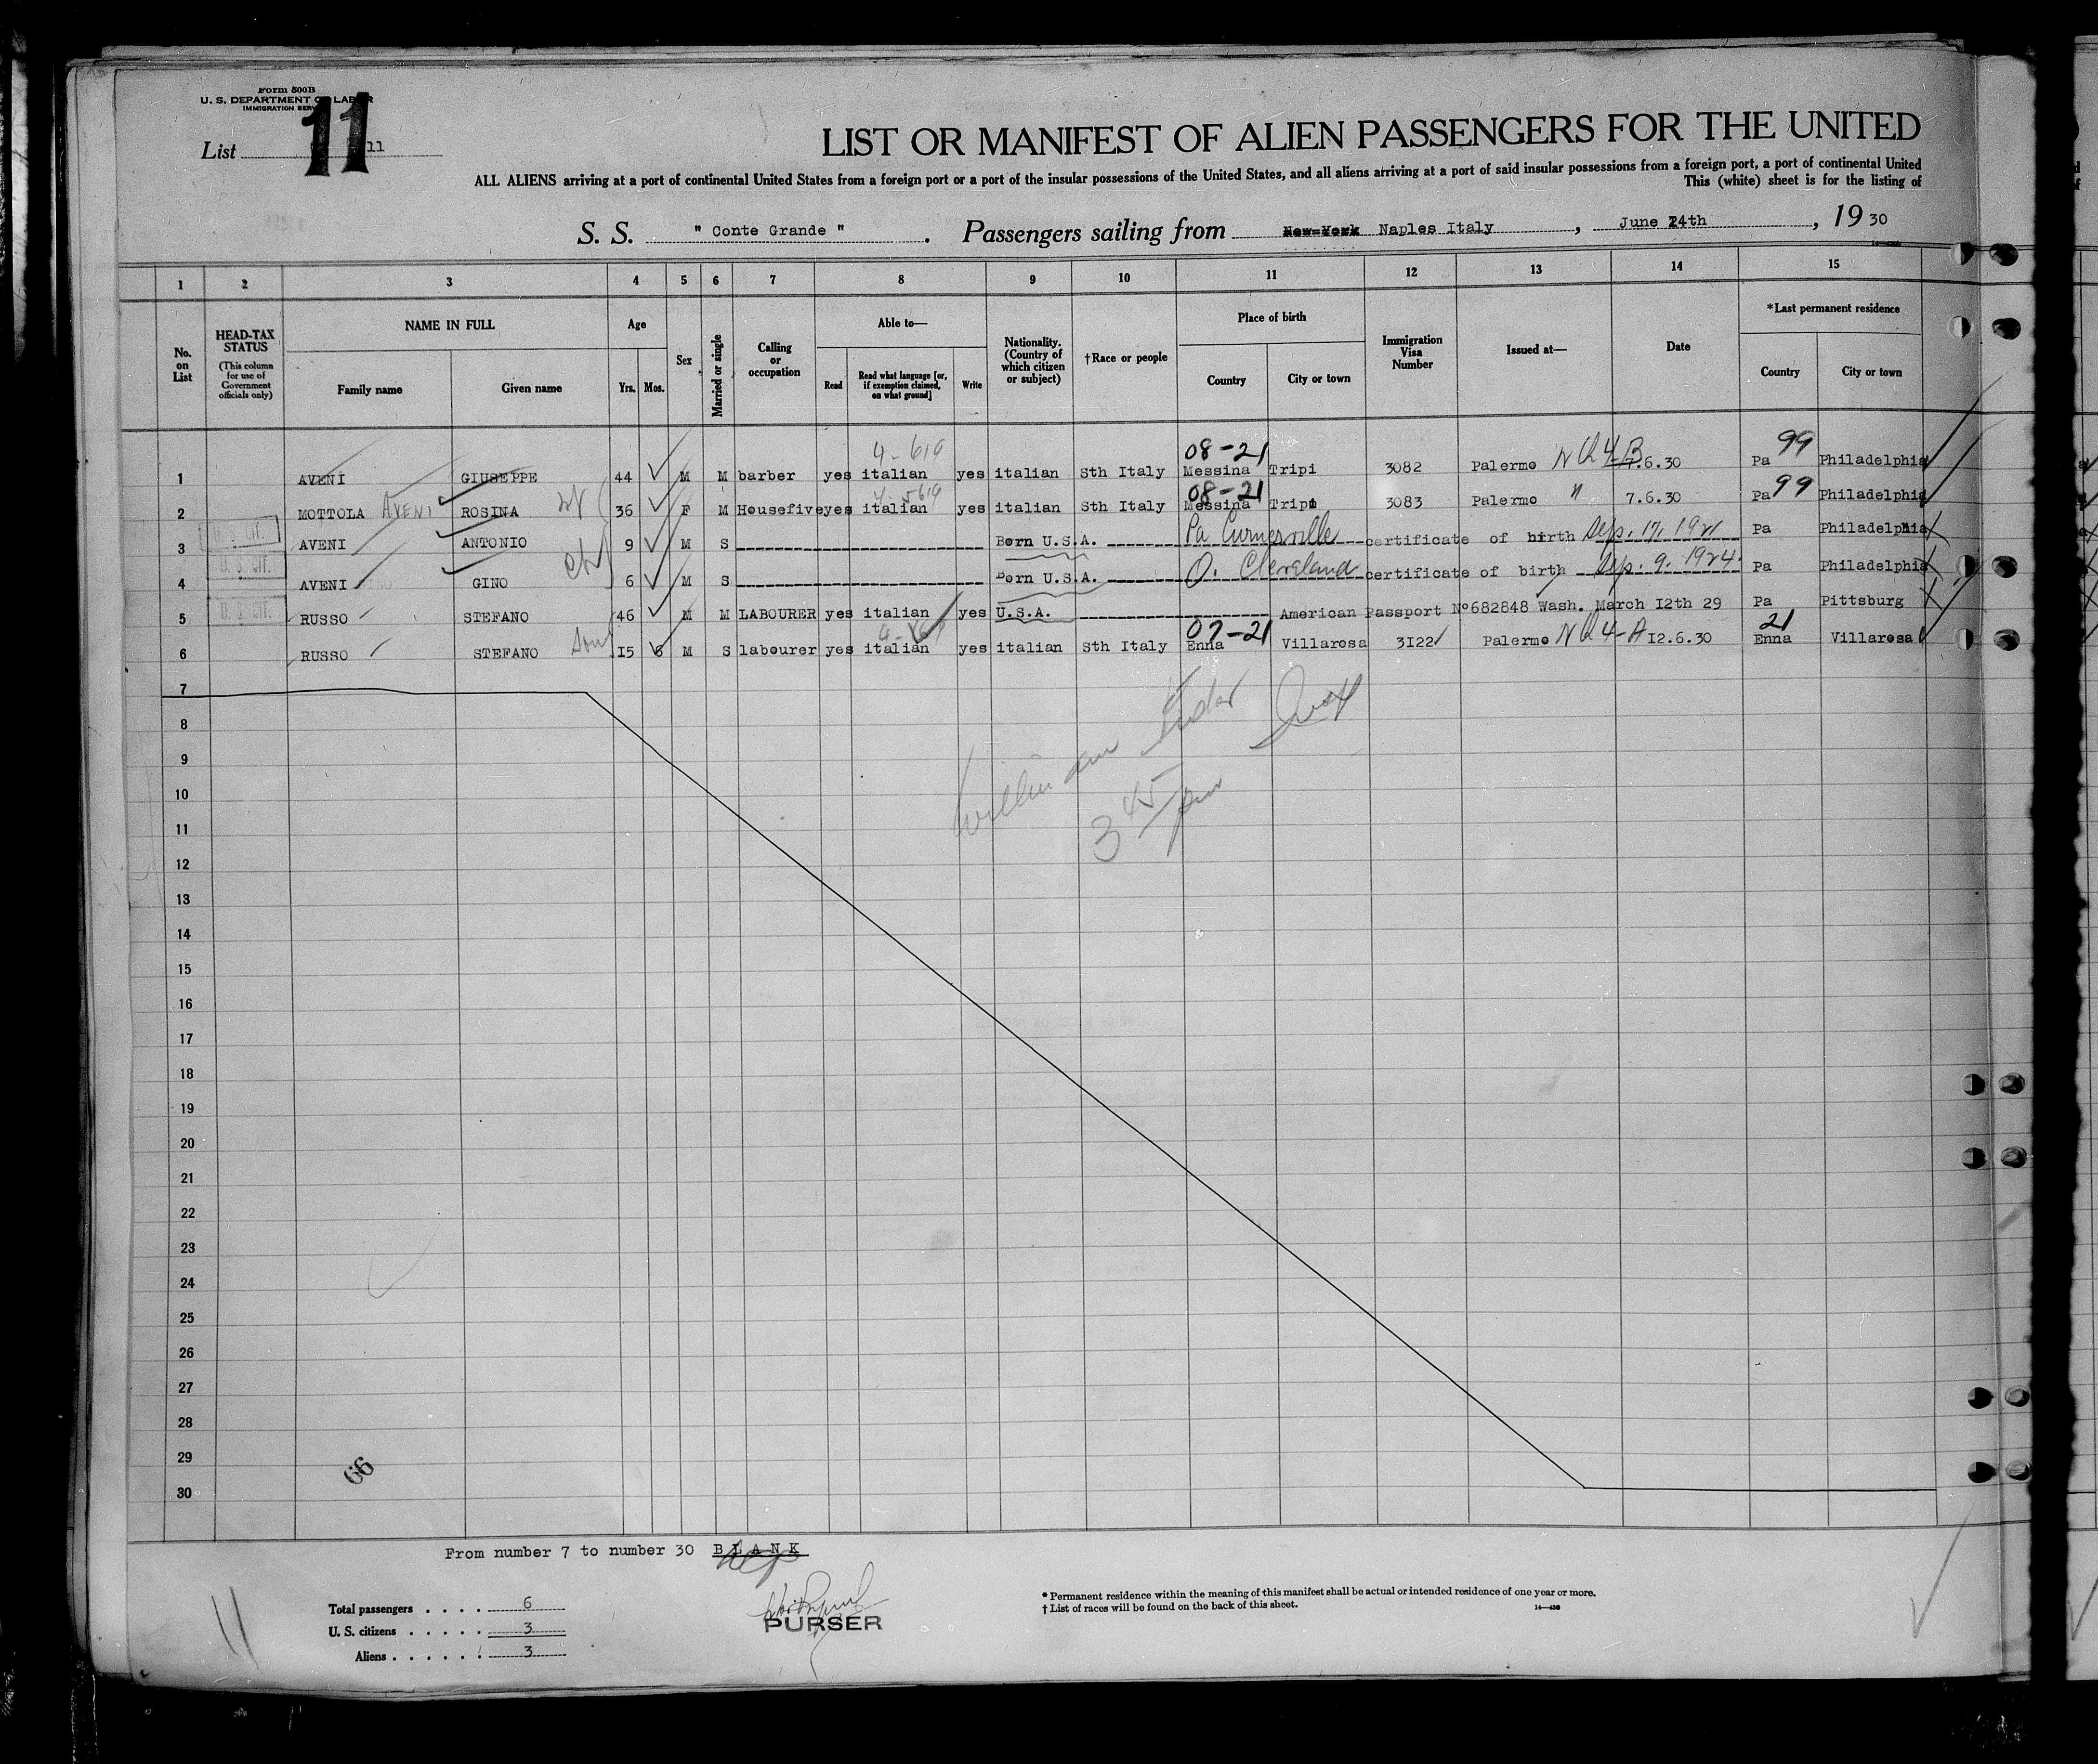 Form 500B
U. S. DEPARTMENT OF LABOR
IMMIGRATION SERV
List 11
11
LIST OR MANIFEST OF ALIEN PASSENGERS FOR THE UNITED
ALL ALIENS arriving at a port of continental United States from a foreign port or a port of the insular possessions of the United States, and all aliens arriving at a port of said insular possessions from a foreign port, a port of continental United
This (white) sheet is for the listing of
S. S. " Conte Grande " . Passengers sailing from New-York Naples Italy , June 24th , 19 30
1 2 3 4 5 6 7 8 9 10 11 12 13 14 15
No. on List
HEAD-TAX STATUS (This column for use of Government officials only)
NAME IN FULL
Family name Given name
Age
Yrs. Mos.
Sex
Married or single
Calling or occupation
Able to—
Read Read what language [or, if exemption claimed, on what ground] Write
Nationality. (Country of which citizen or subject)
†Race or people
Place of birth
Country City or town
Immigration Visa Number
Issued at—
Date
*Last permanent residence
Country City or town
4-619 08-21 NQ4-B 99
1 AVENI GIUSEPPE 44 M M barber yes italian yes italian Sth Italy Messina Tripi 3082 Palermo 7.6.30 Pa Philadelphia
08-21 99
2 MOTTOLA AVENI ROSINA 36 F M Housefive yes italian yes italian Sth Italy Messina Tripi 3083 Palermo " 7.6.30 Pa Philadelphia
U. S. CIT.
3 AVENI ANTONIO 9 M S Born U.S.A. Pa certificate of birth Sep. 17, 1921 Pa Philadelphia
U. S. CIT.
4 AVENI GINO 6 M S Born U.S.A. O. Cleveland certificate of birth Sep. 9. 1924. Pa Philadelphia
U. S. CIT.
5 RUSSO STEFANO 46 M M LABOURER yes italian yes U.S.A. American Passport Nº682848 Wash. March I2th 29 Pa Pittsburg
07-21 NQ4-A 21
6 RUSSO STEFANO Son I5 6 M S labourer yes italian yes italian Sth Italy Enna Villarosa 3I22 Palermo I2.6.30 Enna Villarosa
7
8
9
10
11
12
13
14
15
16
17
18
19
20
21
22
23
24
25
26
27
28
29
30
3 45 pm
66
From number 7 to number 30 BLANK
Total passengers . . . . 6
U. S. citizens . . . . . 3
Aliens . . . . . . 3
PURSER
11
* Permanent residence within the meaning of this manifest shall be actual or intended residence of one year or more.
† List of races will be found on the back of this sheet.